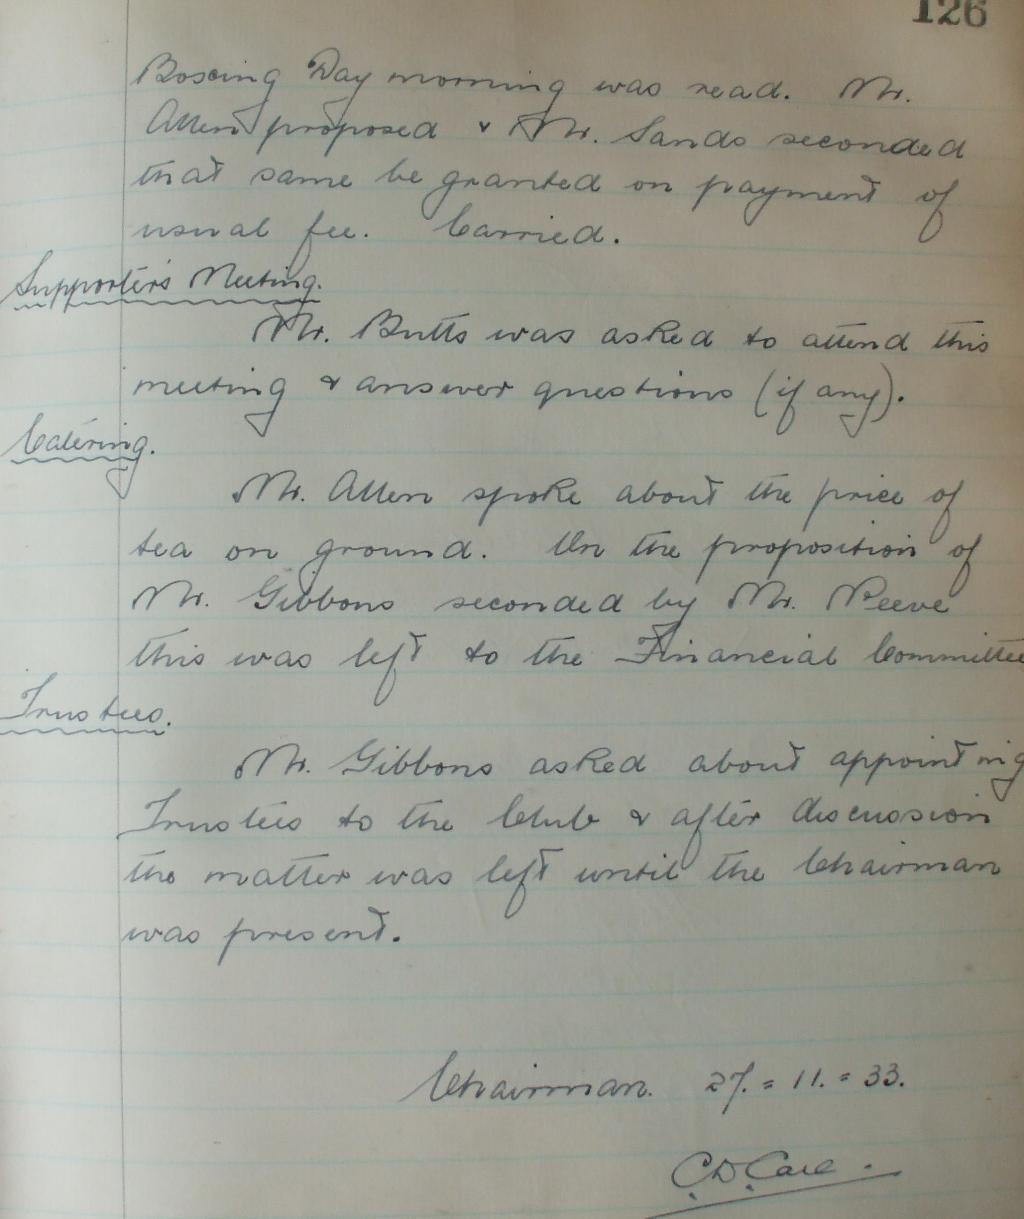 126
Boxing Day morning was read. Mr.
Allen proposed & Mr. Sands seconded
that same be granted on payment of
usual fee. Carried.
Supporters Meeting.
Mr. Butts was asked to attend this
meeting & answer questions (if any).
Catering.
Mr. Allen spoke about the price of
tea on ground. On the proposition of
Mr. Gibbons seconded by Mr. Reeve
this was left to the Financial Committee
Trustees.
Mr. Gibbons asked about appointing
Trustees to the Club & after discussion
the matter was left until the Chairman
was present.
Chairman. 27. = 11. = 33.
C.D.